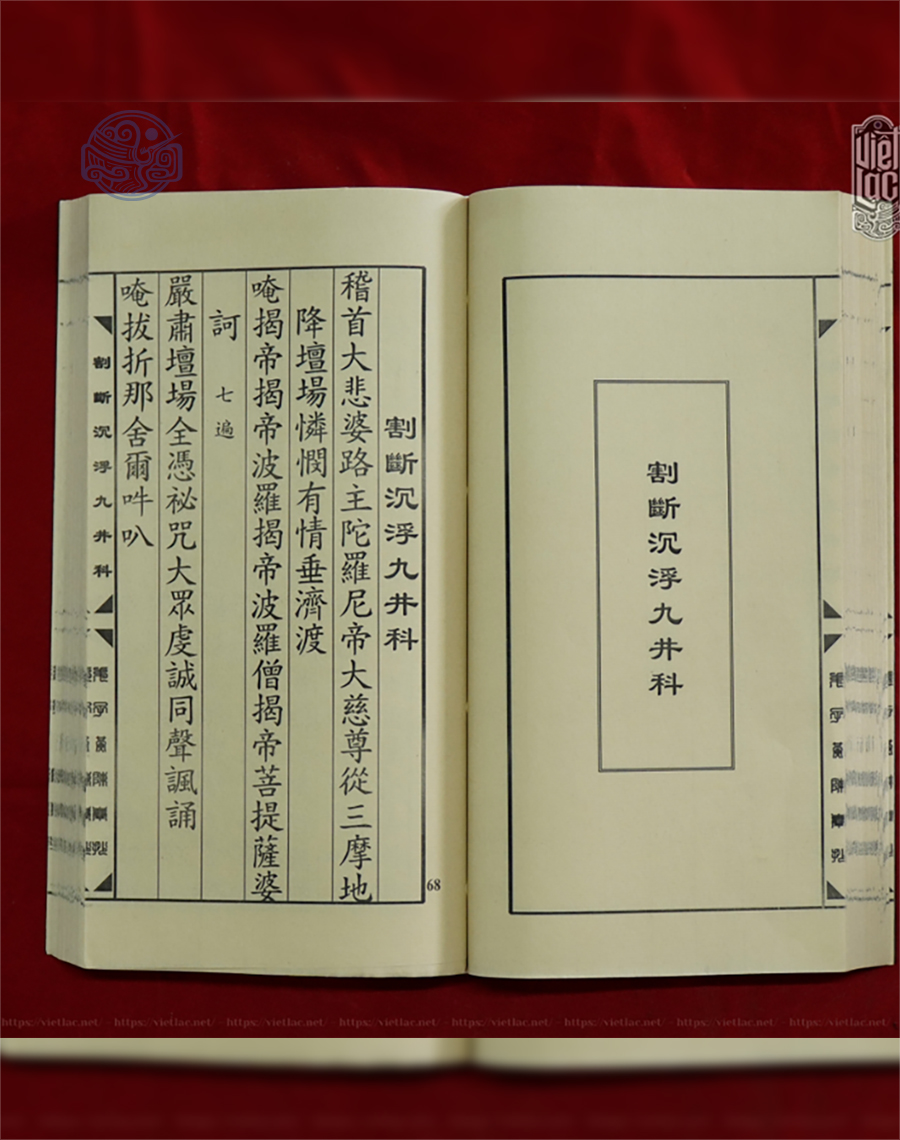 割斷沉浮九井科
割斷沉浮九井科
稽首大悲婆路主陀羅尼帝大慈尊從三摩地
降壇場憐憫有情垂濟渡
唵揭帝揭帝波羅揭帝波羅僧揭帝菩提薩婆
訶 七遍
嚴肅壇場全憑祕咒大眾虔誠同聲諷誦
唵拔折那舍爾吽叭
割斷沉浮九井科
68
Việt Lạc
https://vietlac.net/ - https://vietlac.net/ - https://vietlac.net/ - https://vietlac.net/ - https://vietlac.net/ - https://vietlac.net/ - https://vietlac.net/ - https://vietlac.net/